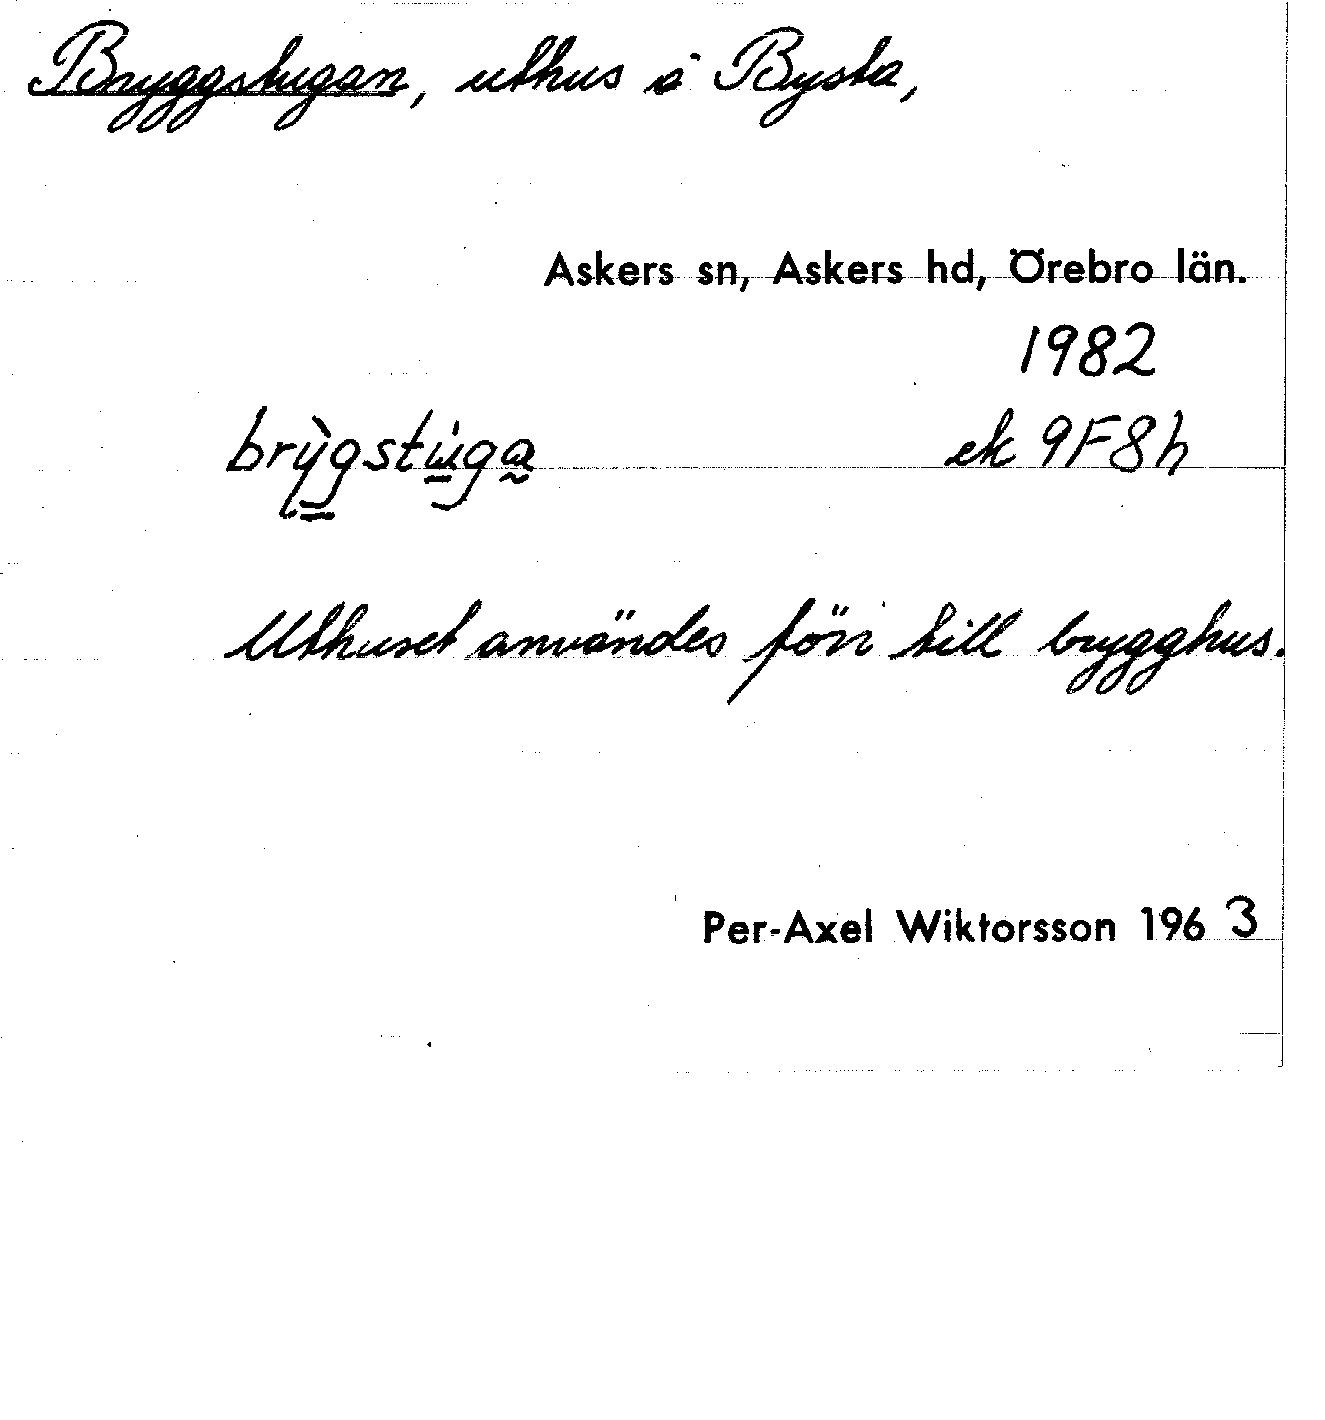 Bryggstugan, uthus å Bysta,
Askers sn, Askers hd, Örebro län.
1982
brỳgstùga ek 9F8h
Uthuset användes förr till brygghus.
Per-Axel Wiktorsson 1963